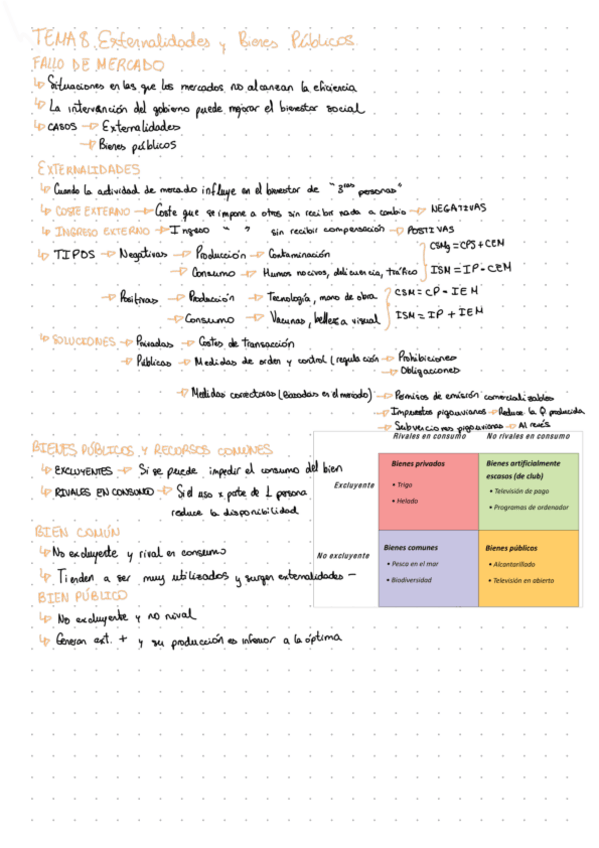 TEMA 8. Externalidades y Bienes Públicos
FALLO DE MERCADO
Situaciones en las que los mercados no alcanzan la eficiencia
La intervención del gobierno puede mejorar el bienestar social
CASOS → Externalidades
→ Bienes públicos
EXTERNALIDADES
Cuando la actividad de mercado influye en el bienestar de "3ras personas"
COSTE EXTERNO → Coste que se impone a otros sin recibir nada a cambio → NEGATIVAS
INGRESO EXTERNO → Ingreso " " sin recibir compensación → POSITIVAS
TIPOS → Negativas → Producción → Contaminación
CSMg = CPS + CEM
→ Consumo → Humos nocivos, delicuencia, tráfico
ISM = IP - CEM
→ Positivas → Producción → Tecnología, mano de obra
CSM = CP - IEM
→ Consumo → Vacunas, belleza visual
ISM = IP + IEM
SOLUCIONES → Privadas → Costes de transacción
→ Públicas → Medidas de orden y control (regulación → Prohibiciones
→ Obligaciones
→ Medidas correctoras (basadas en el mercado) → Permisos de emisión comercializables
→ Impuestos pigouvianos → Reduce la Q producida
→ Subvenciones pigouvianas → Al revés
BIENES PÚBLICOS Y RECURSOS COMUNES
EXCLUYENTES → Si se puede impedir el consumo del bien
RIVALES EN CONSUMO → Si el uso x parte de 1 persona
reduce la disponibilidad
BIEN COMÚN
No excluyente y rival en consumo
Tienden a ser muy utilizados y surgen externalidades −
BIEN PÚBLICO
No excluyente y no rival
Generan ext. + y su producción es inferior a la óptima
Rivales en consumo
No rivales en consumo
Excluyente
Bienes privados
• Trigo
• Helado
Bienes artificialmente
escasos (de club)
• Televisión de pago
• Programas de ordenador
No excluyente
Bienes comunes
• Pesca en el mar
• Biodiversidad
Bienes públicos
• Alcantarillado
• Televisión en abierto